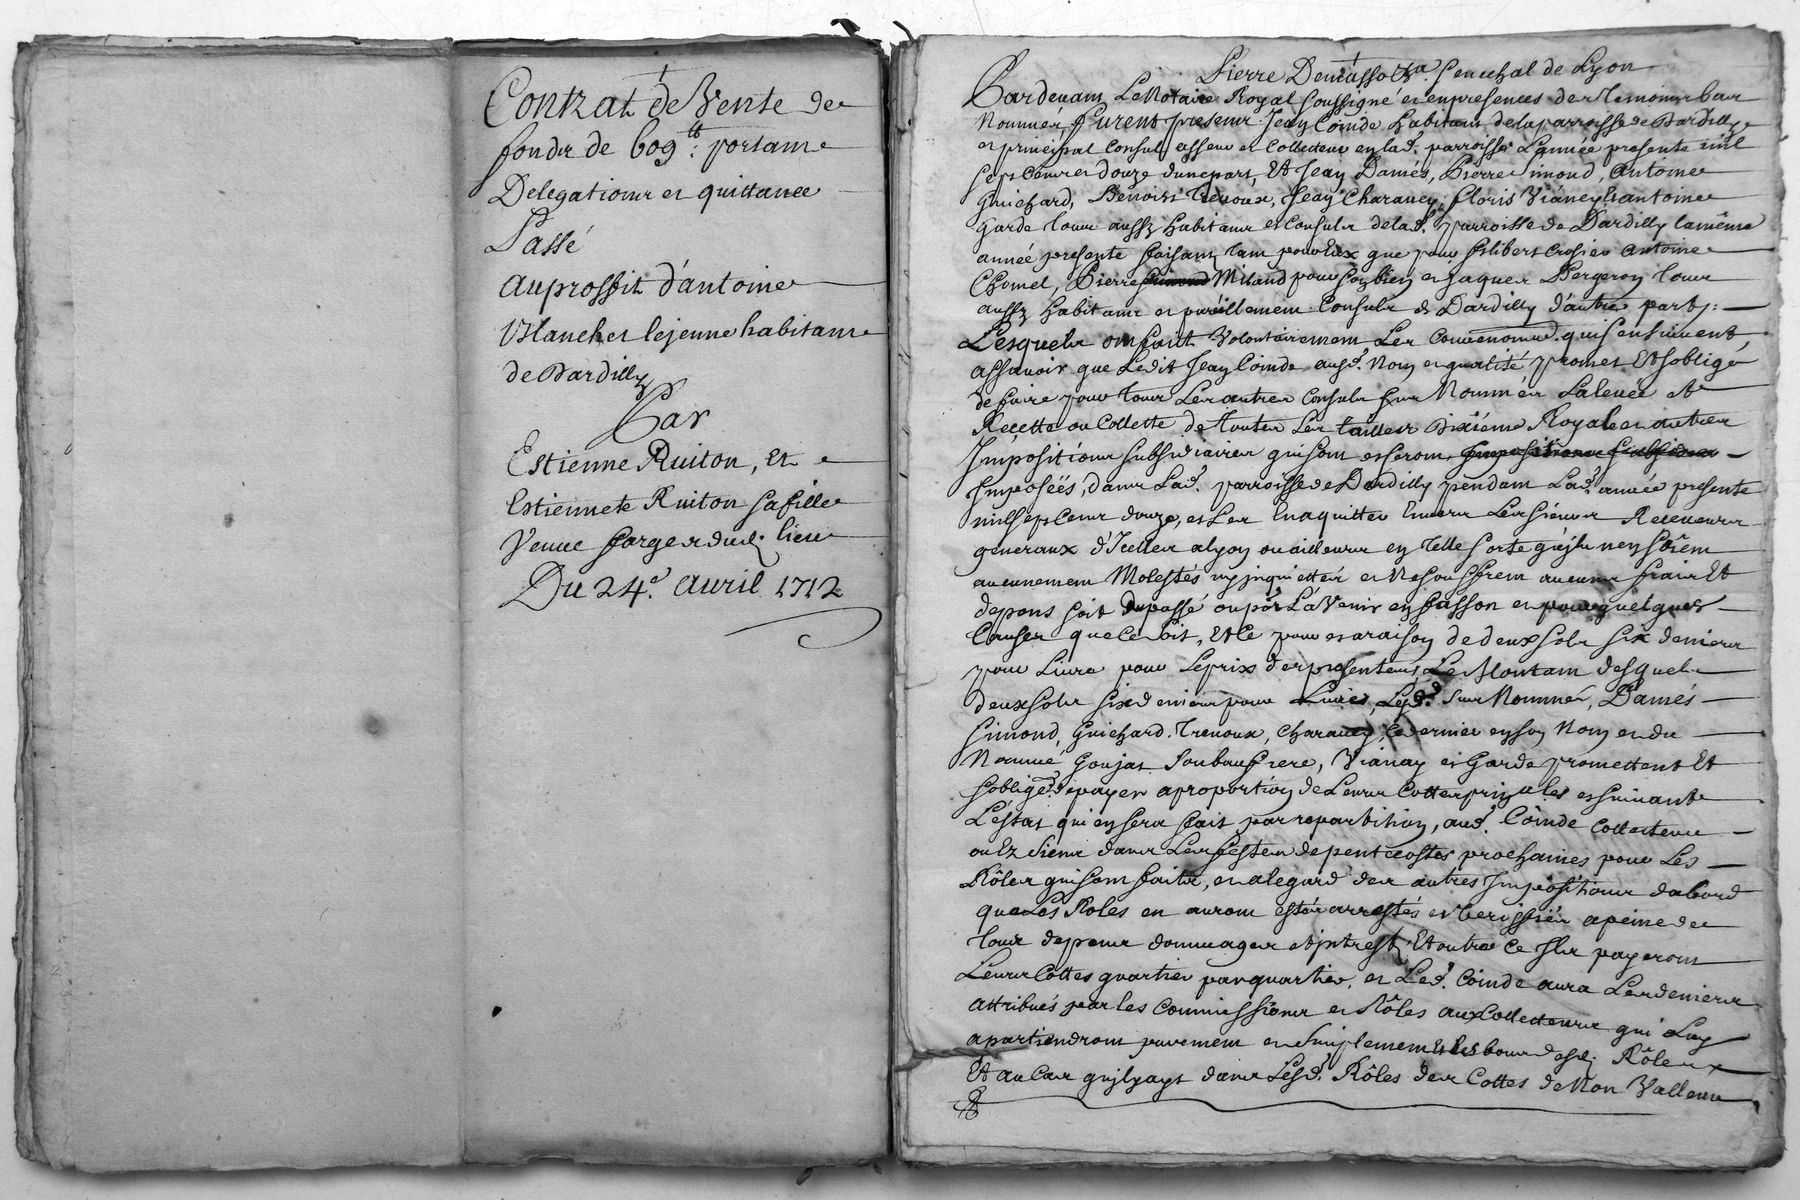 Contrat de Vente de
fonds de 609 ₶: portant
Delegations et quittance
Passé
au proffit d'antoine
Blanchet le jeune habitant
de Dardilly
Par
Estienne Ruiton, Et
Estiennete Ruiton sa fille
Veuve farges dud. lieu
Du 24e. Avril 1712
Pierre Senechal de Lyon
Pardevant Le Notaire Royal soussigné et en presences des temoins bas
Nommés furent presents Jean Coinde habitant de la parroisse de Dardilly
et principal Consul asseeur et Collecteur en lad. parroisse L'année presente mil
sept cents et douze d'une part, Et Jean Damés, Pierre Simond, Antoine
Guichard, Benoist Trenoux, Jean Charavey, floris Vianey et antoine
Garde tous aussy habitants et Consuls de lad. parroisse de Dardilly la même
année presente faisant tant pour Eux que pour filibert Crosier antoine
Chomel, Pierre Miland pour son bien et Jaques Bergeron tous
aussy habitants et pareillement Consuls de Dardilly d'autre part: —
Lesquels ont fait Volontairement Les Conventions qui ensuivent
assavoir que Ledit Jean Coinde aud. Nom et qualité promet Et s'oblige
de faire pour tous Les autres Consuls sus Nommés La levée Et
Recette ou Collette de toutes Les tailles Dixième Royale et autres
Impositions subsidiaires qui sont et seront Impositions subsidiaires —
Imposéés, dans Lad. parroisse de Dardilly pendant Lad. année presente
mil sept cents douze, et Les En aquitter Envers Les sieurs Receveurs
generaux d'Icelles a lyon ou ailleurs en telle sorte qu'ils n'en soient
aucunement Molestés ny inquiettés et Ne souffrent aucuns frais Et
depens soit du passé ou pour L'avenir en fasson et pour quelques
Causes que Ce soit, Et Ce pour et a raison de deux sols six deniers
pour Livre pour Le prix des presentes, Le Montant desquels
deux sols six deniers pour Livre, Lesd. sus Nommés, Damés —
Simond, Guichard, Trenoux, Charavey, Ce dernier en son Nom et du
Nommé Goujat son beaufrere, Vianay et Garde promettent Et
s'obligent de payer a proportion de Leurs Cottes et suivant
L'estat qui en sera fait par repartition, aud. Coinde Collecteur —
ou Ez siens dans Les festes de pentecostes prochaines pour Les —
Rôles qui sont faits, et a l'egard des autres Impositions d'abord
que Les Roles en auront estés arrestés et Veriffiés a peine de
tous depens dommages et intrest, Et outre Ce Ils payeront
Leurs Cottes quartier par quartier, et Led. Coinde aura Les deniers
attribués par les Commissions et Rôles aux Collecteurs qui Luy
apartiendront purement et simplement desd. Rôles
Et au Cas qu'il y ayt dans Lesd. Rôles des Cottes de Non Valleur